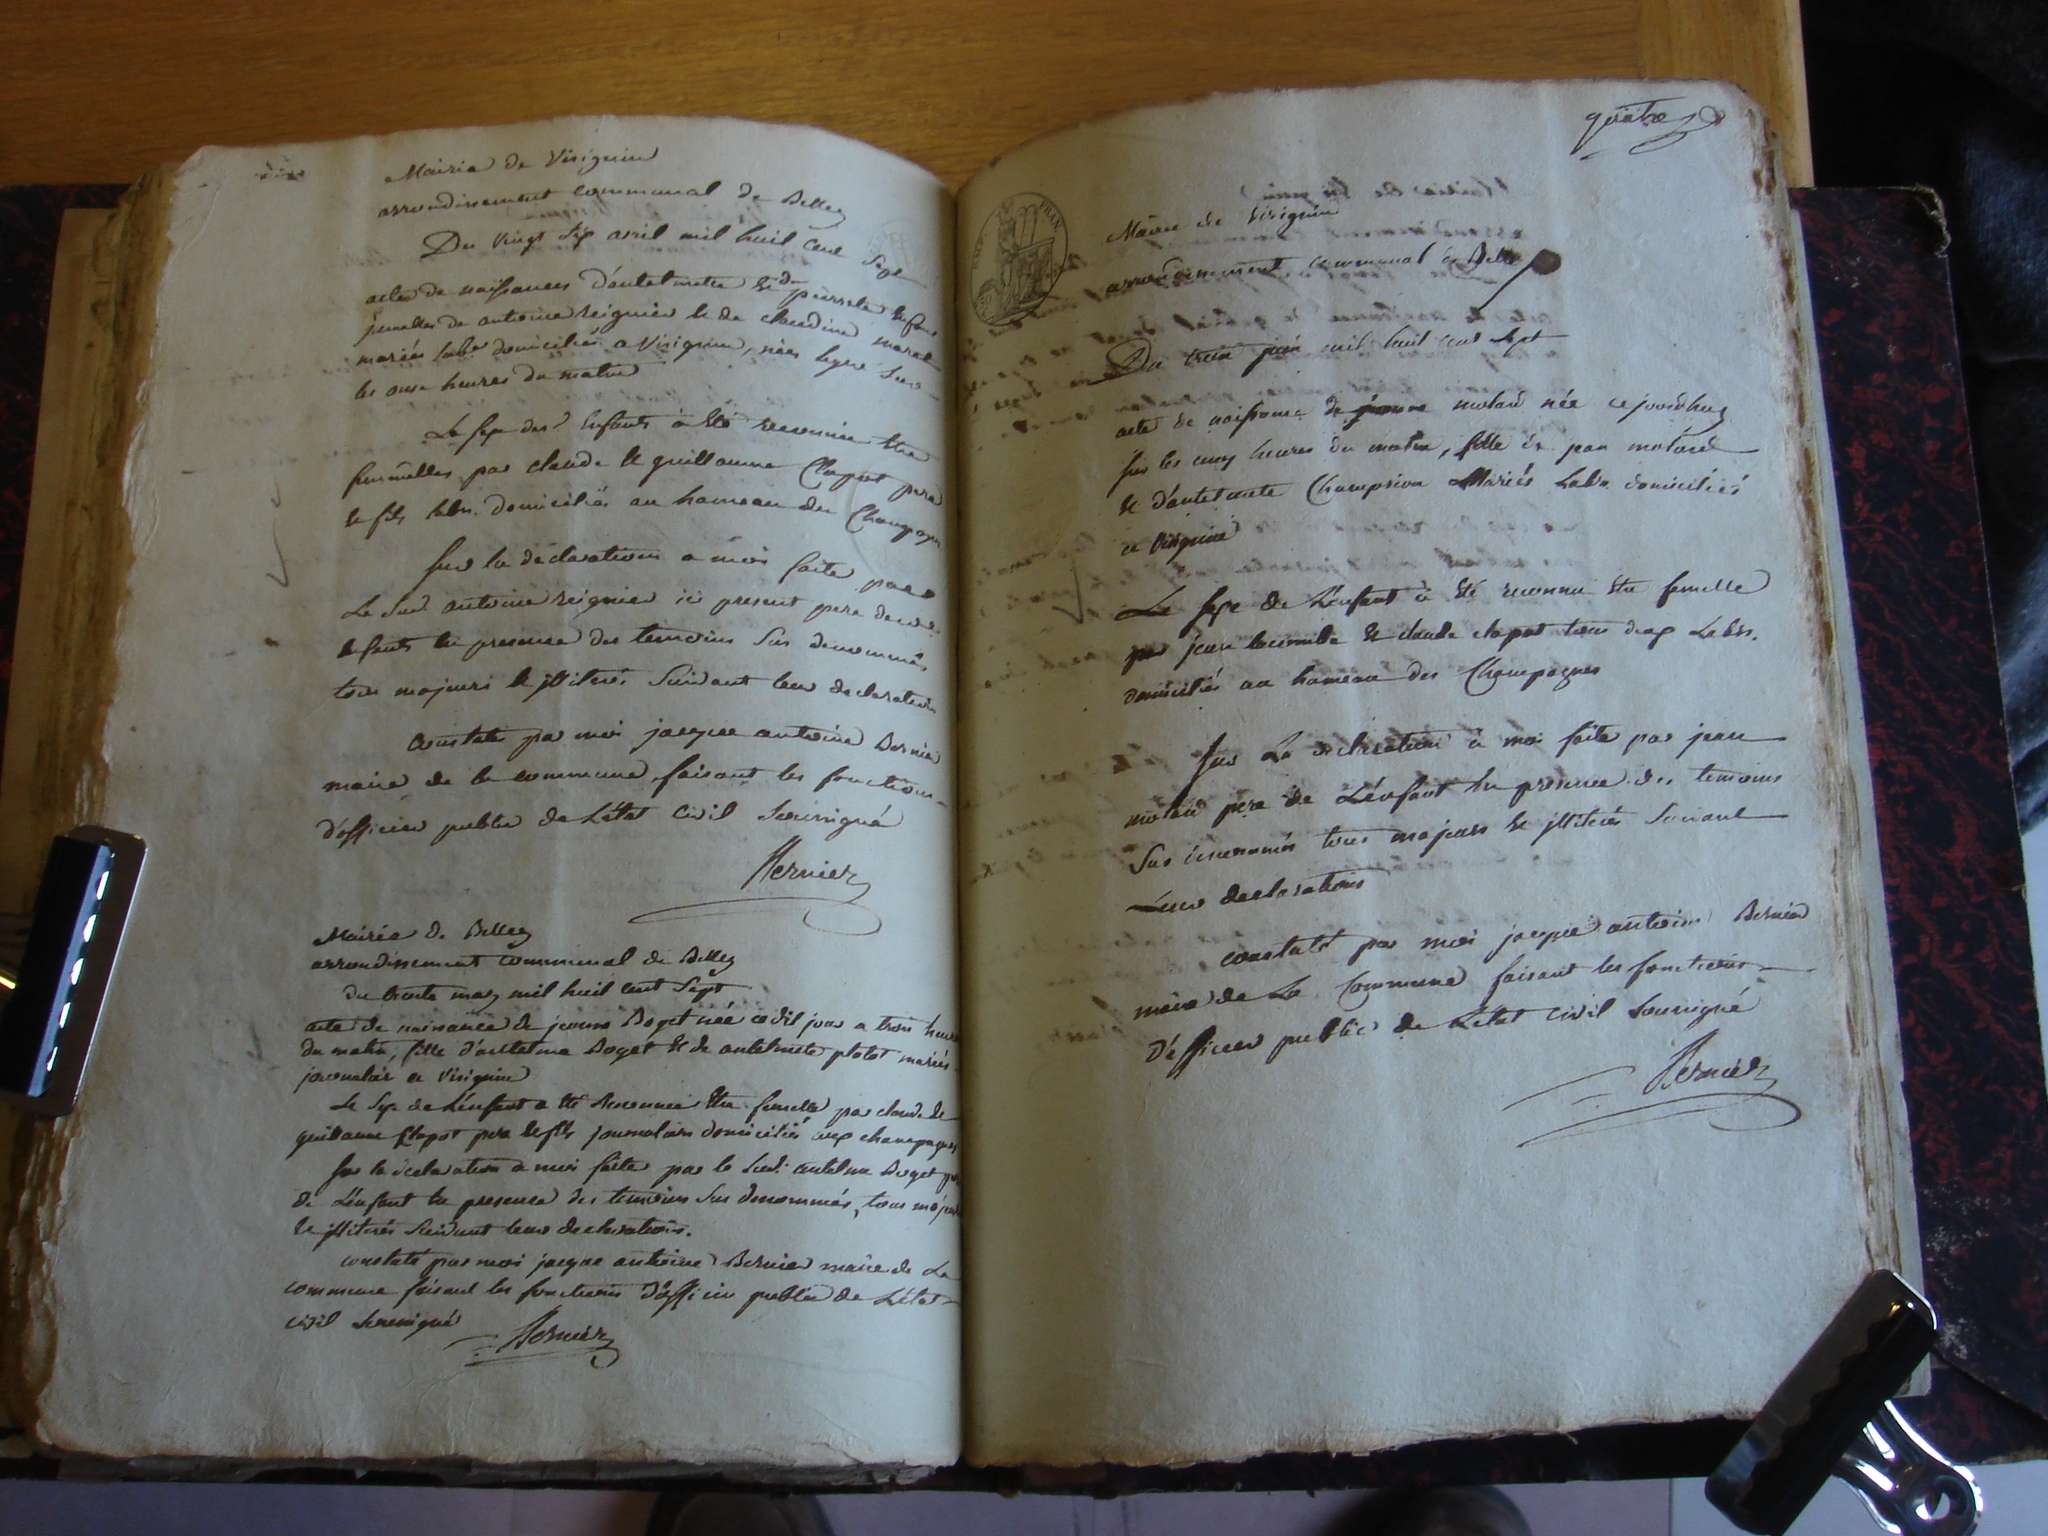 Mairie de Virignin
arrondissement communal de Belley
Du vingt sep avril mil huil cent sept
acte de naissances d'antelmette et de pierrete Enfans
jumelles de antoine Reignier et de claudine maret
mariés labrs domiciliés a Virignin, nées
les onze heures du matin
Le sexe des Enfants à Eté reconnu Etre
femelles par claude et guillaume Clapot pere
et fils labrs. domiciliés au hameau des Champagnes
Sur la declaration a moi faite par
Le Sud. antoine reignier ici present pere
En presence des temoins Sus denommés
tous majeurs et illiterés Suivant leur declaration
Constaté par moi jacque antoine Bernier
maire de la commune faisant les fonctions
d'officier public de L'état civil Soussigné
Bernier
Mairie de Belley
arrondissement communal de Belley
du trente mars mil huil cent Sept
acte de naissance de jeanne Boget née cedit jour a trois heures
du matin, fille d'anthelme Boget et de antelmete platet mariés
journalier a Virignin
Le Sexe de L'enfant a Eté Reconnue Etre femelle par claude et
guillaume Clapot pere et fils journaliers domiciliés aux champagnes
Sur la declaration a moi faite par le Sud. antelme Boget pere
de L'enfant En presence des temoins Sus denommés, tous majeurs
et illiterés Suivant leur declaration.
constaté par moi jacque antoine Bernier maire de La
commune faisant les fonctions d'officier public de L'état
civil Soussigné
Bernier
quatre
FRAN.
Mairie de Virignin
arrondissement communal de Belley
Du trois juin mil huil cent Sept
acte de naissance de jeanne motard née cejourdhuy
Sur les cinq heures du matin, fille de jean motard
et d'antelmete Champion Mariés Labrs domiciliés
a Virignin
Le Sexe de L'enfant à Eté reconnu Etre femelle
par jean lacombe et claude clapot tous deux Labrs.
domiciliés au hameau des Champagnes
Sur La declaration à moi faite par jean
motard pere de L'enfant En presence des temoins
Sus denommés tous majeurs et illiterés Suivant
Leur declaration
constaté par moi jacque antoine Bernier
maire de La Commune faisant les fonctions
d'officier public de L'état civil Soussigné
Bernier